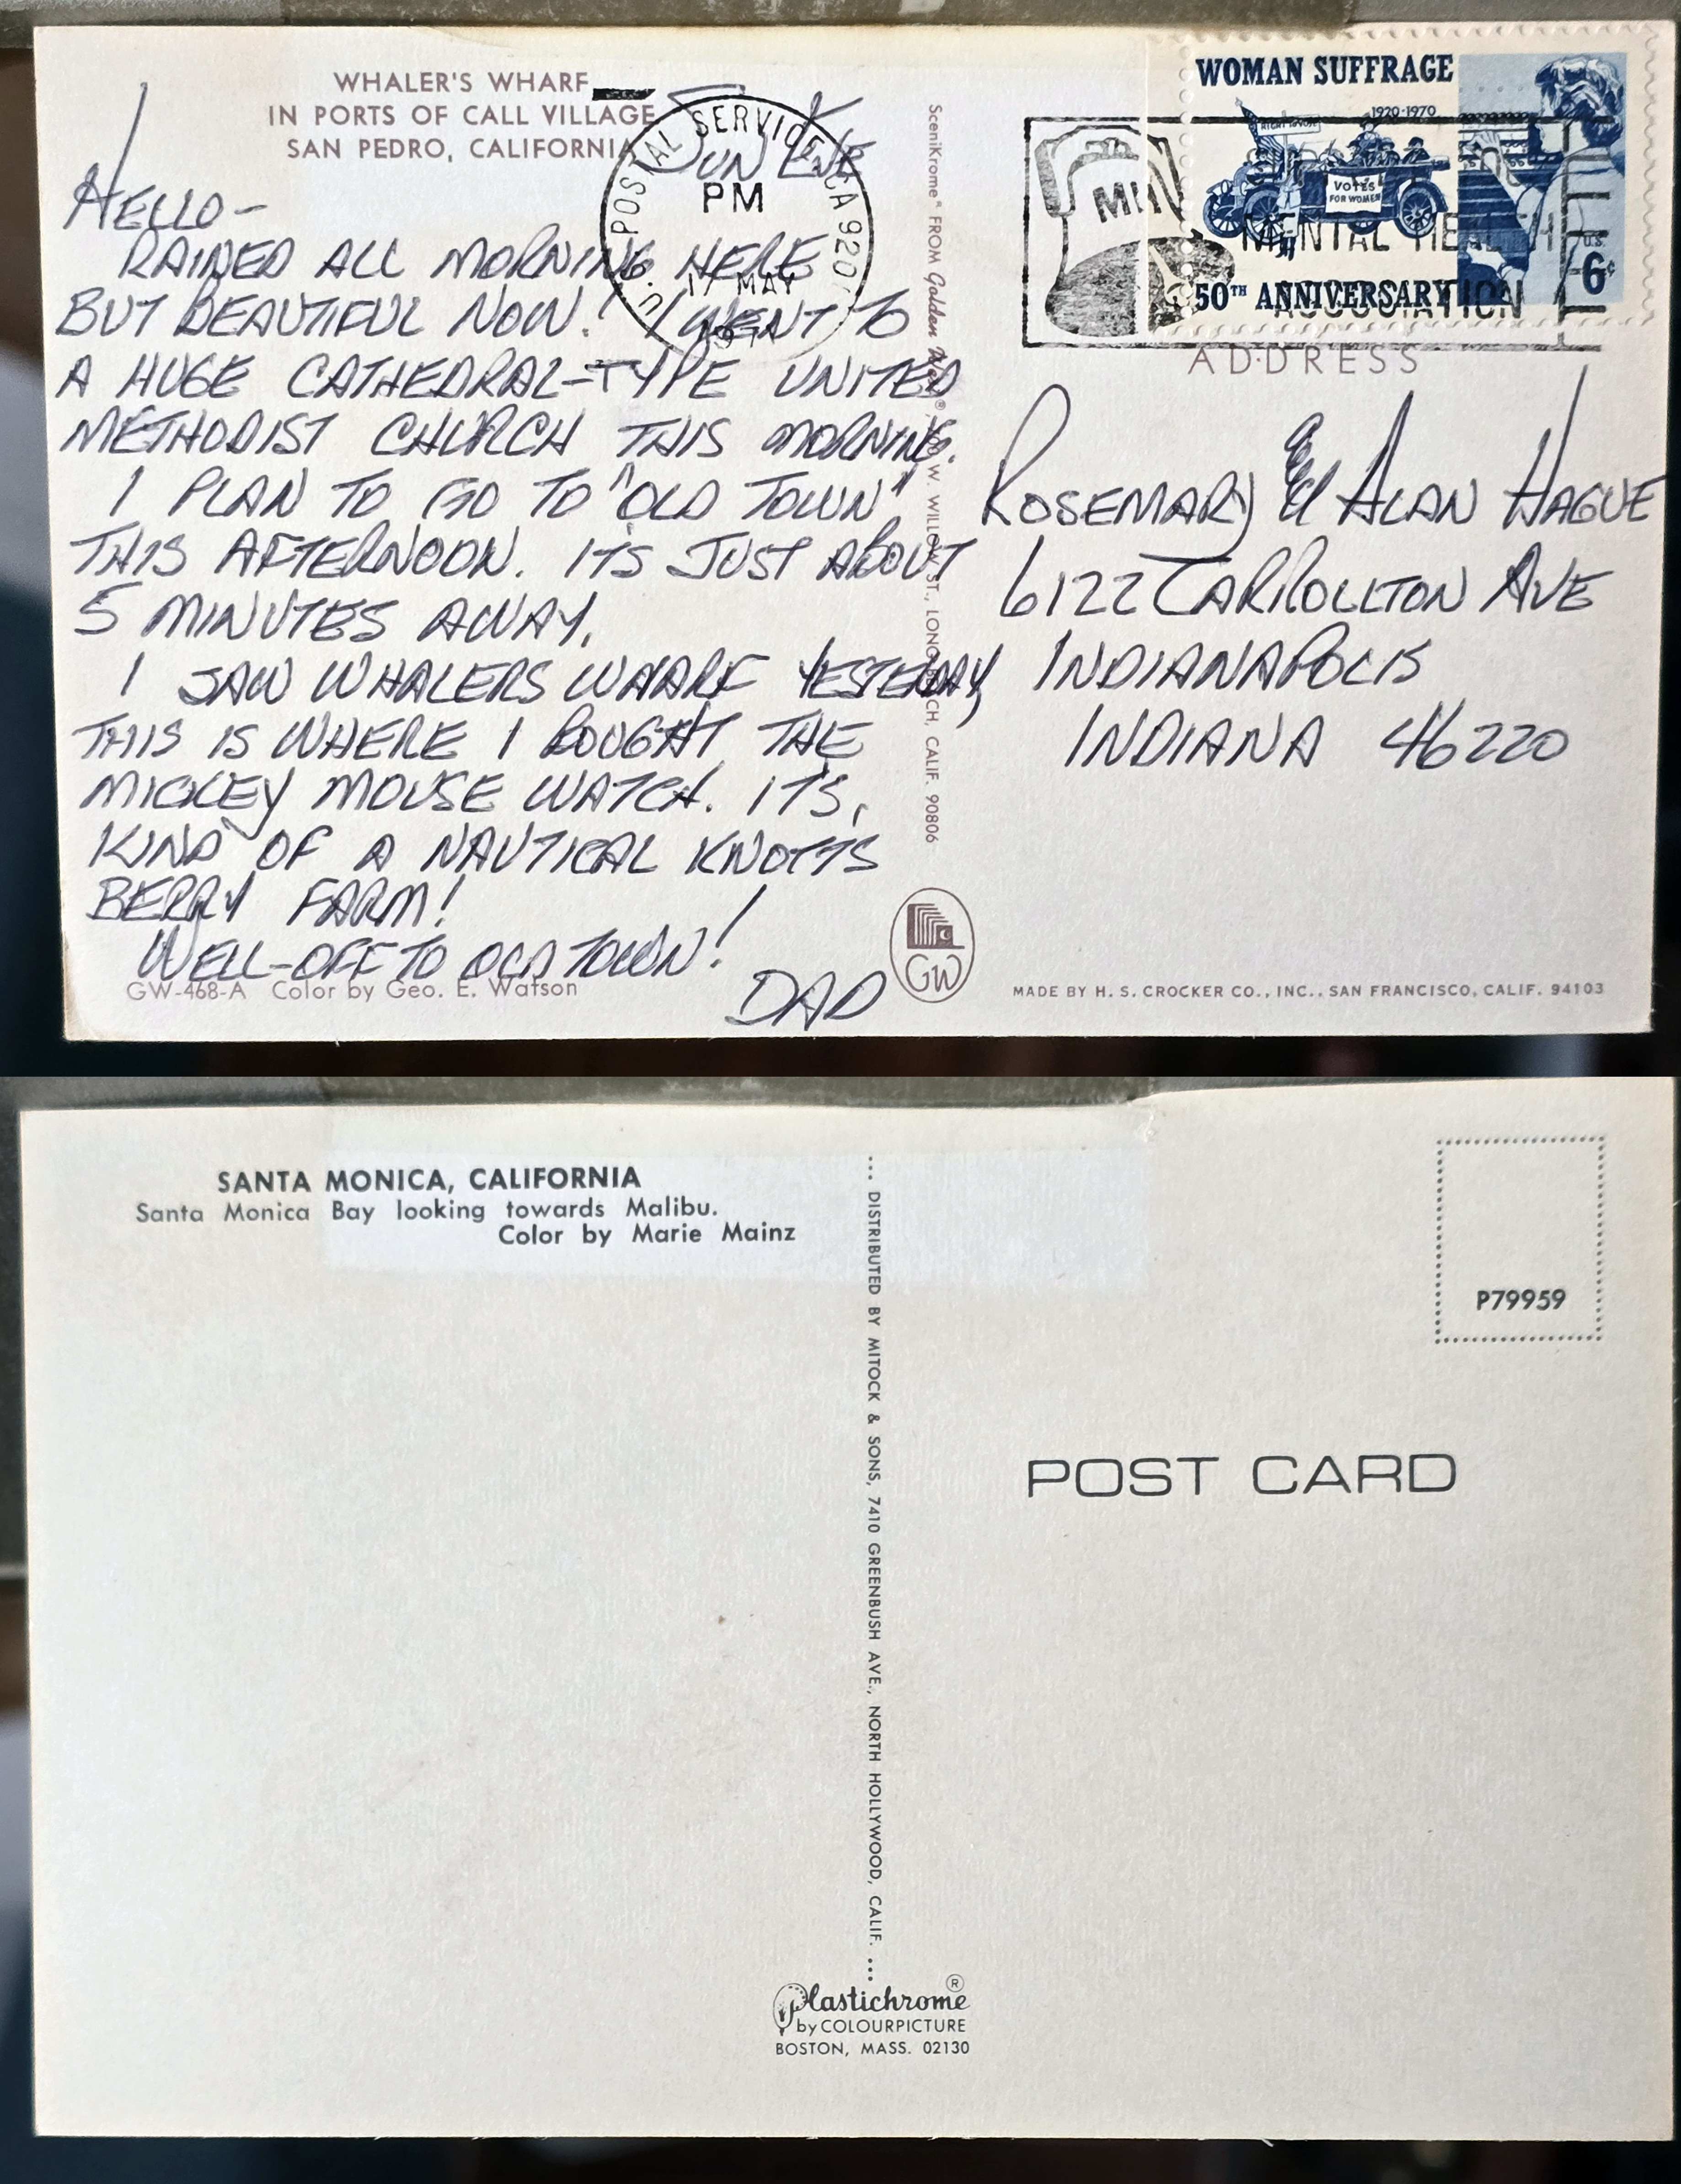 WHALER'S WHARF
IN PORTS OF CALL VILLAGE
SAN PEDRO, CALIFORNIA
SUN EVE
U.S. POSTAL SERVICE CA 920
PM
17 MAY
HELLO-
RAINED ALL MORNING HERE
BUT BEAUTIFUL NOW! I WENT TO
A HUGE CATHEDRAL-TYPE UNITED
METHODIST CHURCH THIS MORNING.
I PLAN TO GO TO "OLD TOWN"
THIS AFTERNOON. ITS JUST ABOUT
5 MINUTES AWAY.
I SAW WHALERS WHARF YESTERDAY
THIS IS WHERE I BOUGHT THE
MICKEY MOUSE WATCH. ITS,
KIND OF A NAUTICAL KNOTTS
BERRY FARM!
WELL-OFF TO OLD TOWN!
DAD
GW-468-A Color by Geo. E. Watson
SceniKrome® FROM Golden West® W. WILLOW ST., LONG BEACH, CALIF. 90806
GW
WOMAN SUFFRAGE
1920-1970
VOTES
FOR WOMEN
50TH ANNIVERSARY
U.S.
6¢
MENTAL HEALTH
ASSOCIATION
ADDRESS
ROSEMARY & ALAN HAGUE
6122 CARROLLTON AVE
INDIANAPOLIS
INDIANA 46220
MADE BY H. S. CROCKER CO., INC., SAN FRANCISCO, CALIF. 94103
SANTA MONICA, CALIFORNIA
Santa Monica Bay looking towards Malibu.
Color by Marie Mainz
... DISTRIBUTED BY MITOCK & SONS, 7410 GREENBUSH AVE., NORTH HOLLYWOOD, CALIF. ...
P79959
POST CARD
Plastichrome®
by COLOURPICTURE
BOSTON, MASS. 02130